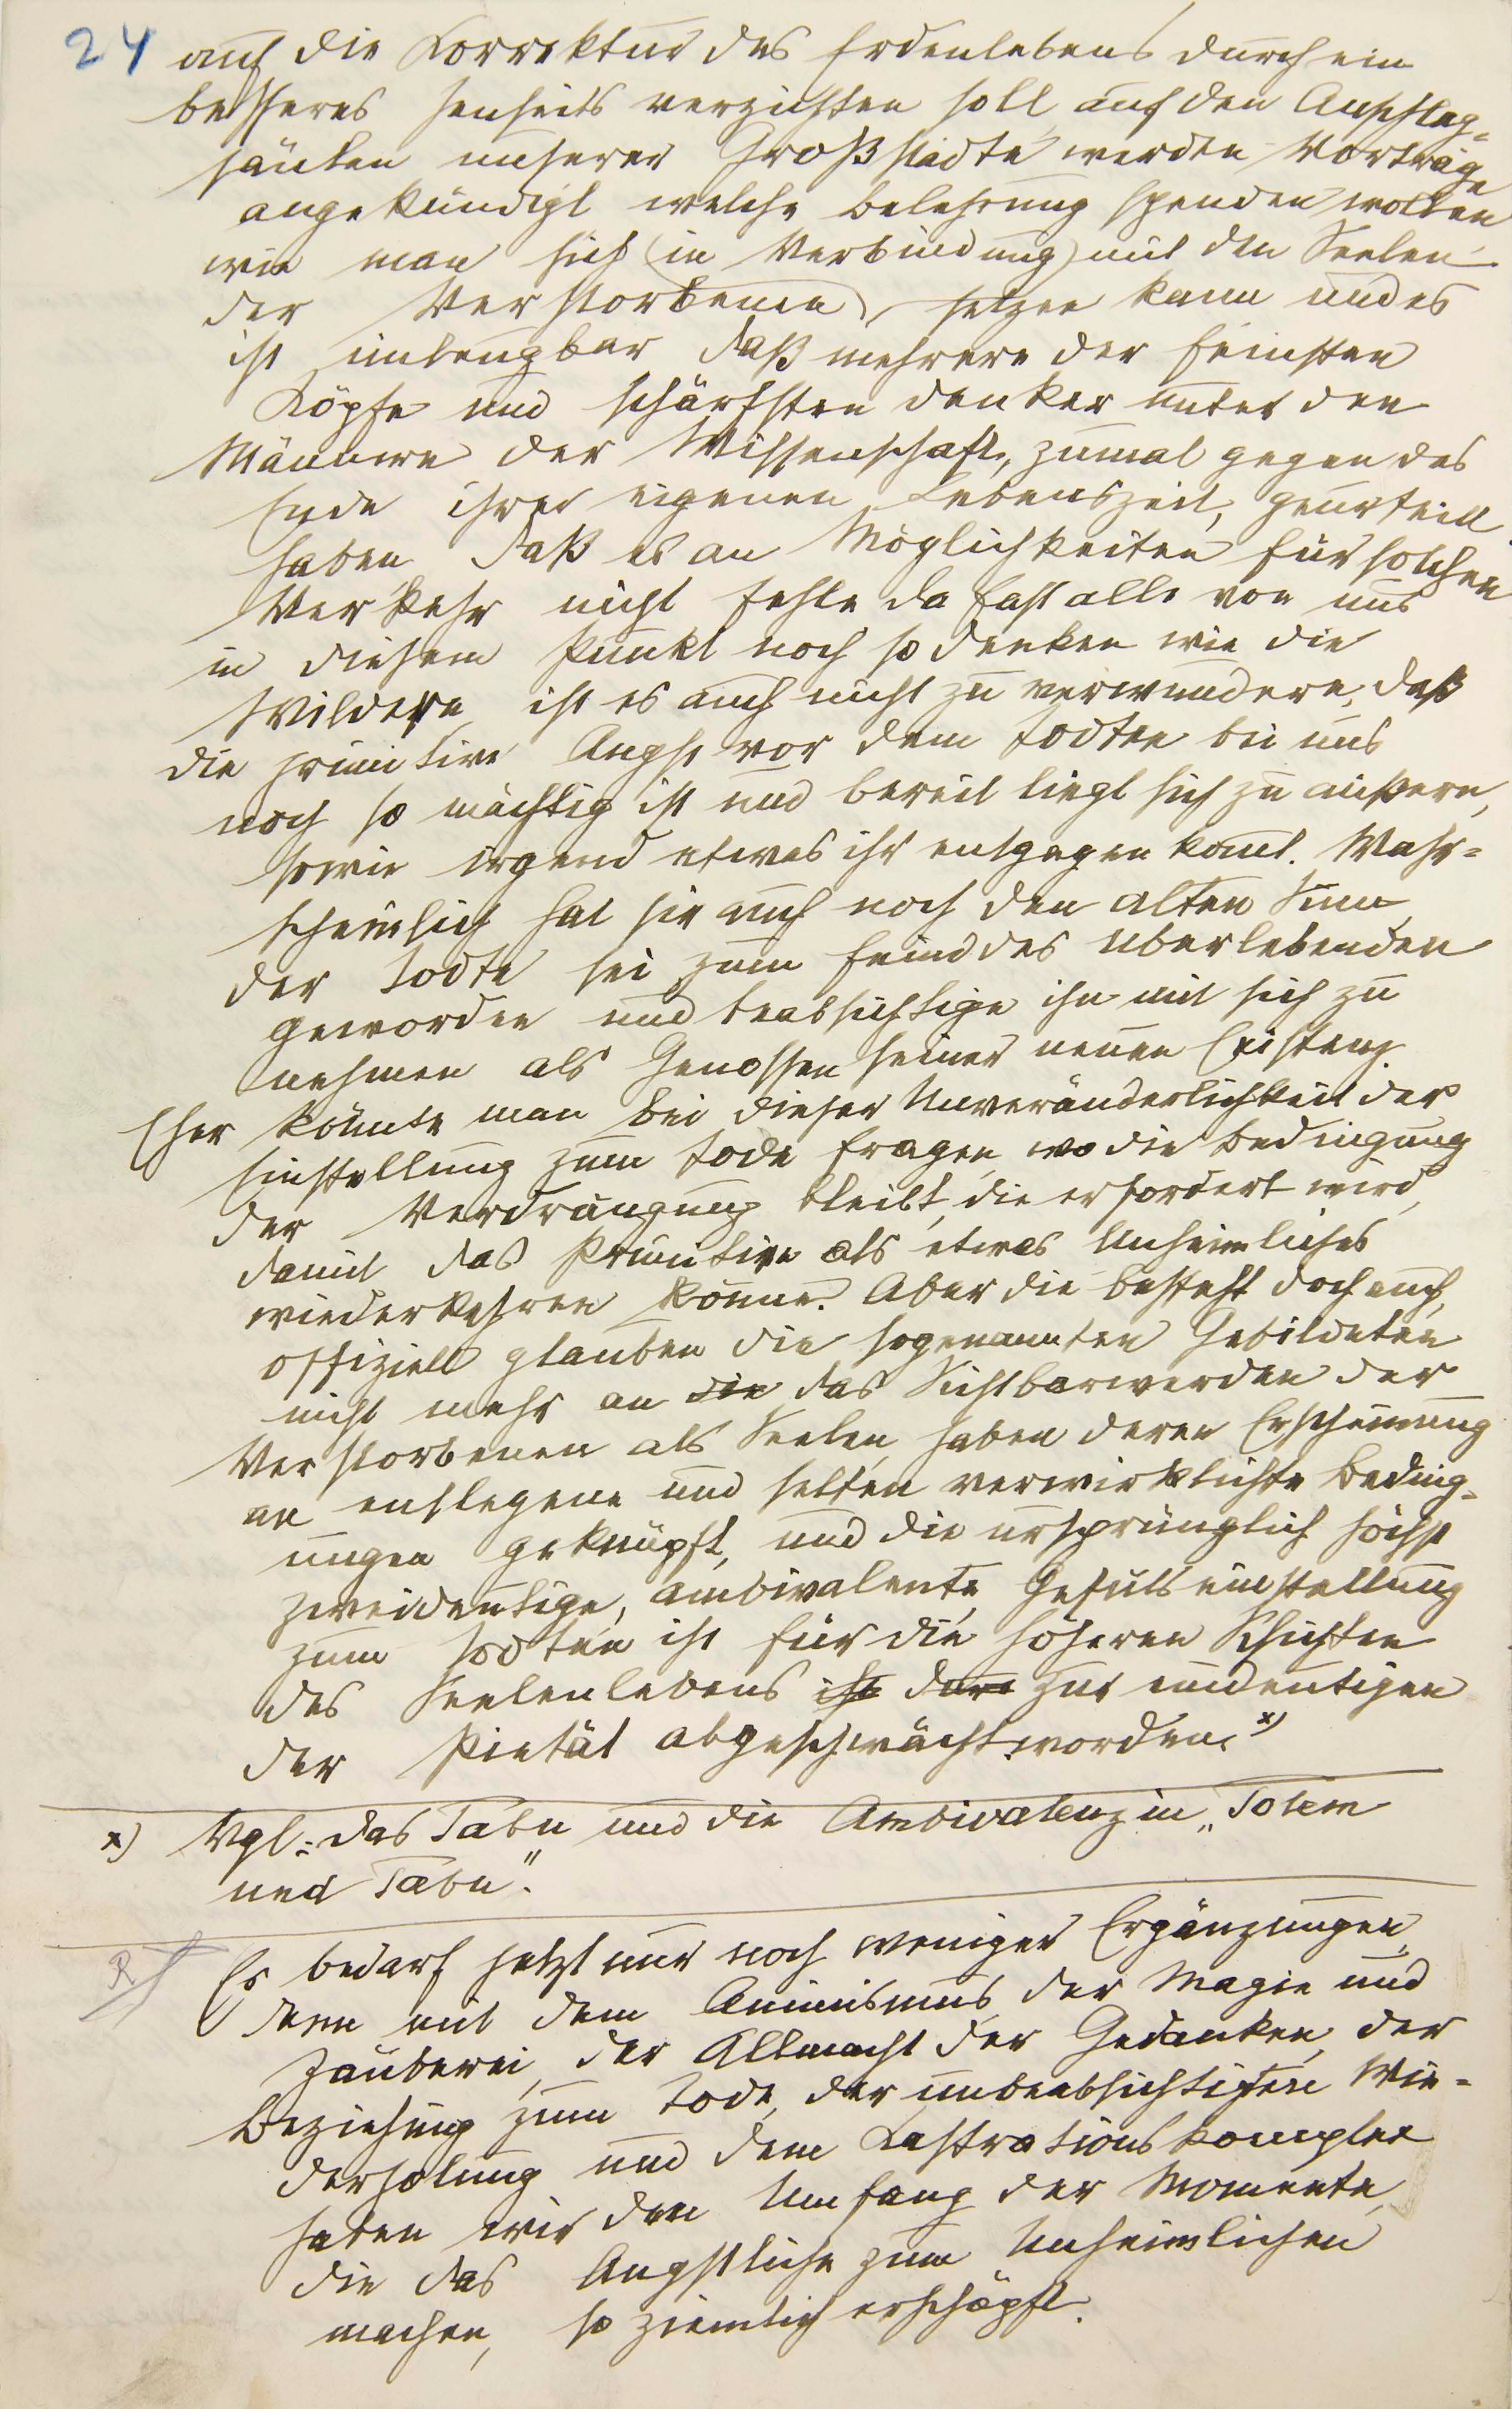 24 auf die Korrektur des Erdenlebens durch ein
besseres Jenseits verzichten soll, auf den Anschlag-
säulen unserer Großstädte werden Vorträge
angekündigt welche Belehrung spenden wollen
wie man sich (in Verbindung) mit den Seelen
der Verstorbenen, setzen kann und es
ist unleugbar daß mehrere der feinsten
Köpfe und schärfsten Denker unter den
Männern der Wissenschaft, zumal gegen das
Ende ihrer eigenen Lebenszeit, geurteilt
haben daß es an Möglichkeiten für solchen
Verkehr nicht fehle da fast alle von uns
in diesem Punkt noch so denken wie die
Wilden, ist es auch nicht zu verwundern, daß
die primitive Angst vor dem Todten bei uns
noch so mächtig ist und bereit liegt sich zu äußern,
sowie irgend etwas ihr entgegen komt. Wahr=
scheinlich hat sie auch noch den alten Sinn,
der Todte sei zum Feind des Uberlebenden
geworden und beabsichtige ihn mit sich zu
nehmen als Genossen seiner neuen Existenz.
Eher könnte man bei dieser Unveränderlichkeit der
Einstellung zum Tode fragen, wo die Bedingung
der Verdrängung bleibt, die erfordert wird,
damit das Primitive als etwas Unheimliches
wiederkehren könne. Aber die besteht doch auch,
offiziell glauben die sogenannten Gebildeten
nicht mehr an die das Sichtbarwerden der
Verstorbenen als Seelen, haben deren Erscheinung
an entlegene und selten verwirklichte Beding-
ungen geknüpft, und die ursprünglich höchst
zweideutige, ambivalente Gefülseinstellung
zum Todten ist für die höheren Schichten
des Seelenlebens ist dere zur eindeutigen
der Pietät abgeschwächt worden. x)
x) Vgl: das Tabu und die Ambivalenz in „Totem
und Tabu".
Es bedarf jetzt nur noch weniger Ergänzungen,
denn mit dem Animismus, der Magie und
Zauberei, der Allmacht der Gedanken, der
Beziehung zum Tode, der unbeabsichtigten Wie=
derholung und dem Kastrationskomplex
haben wir den Umfang der Momente,
die das Angstliche zum Unheimlichen
machen, so ziemlich erschöpft.